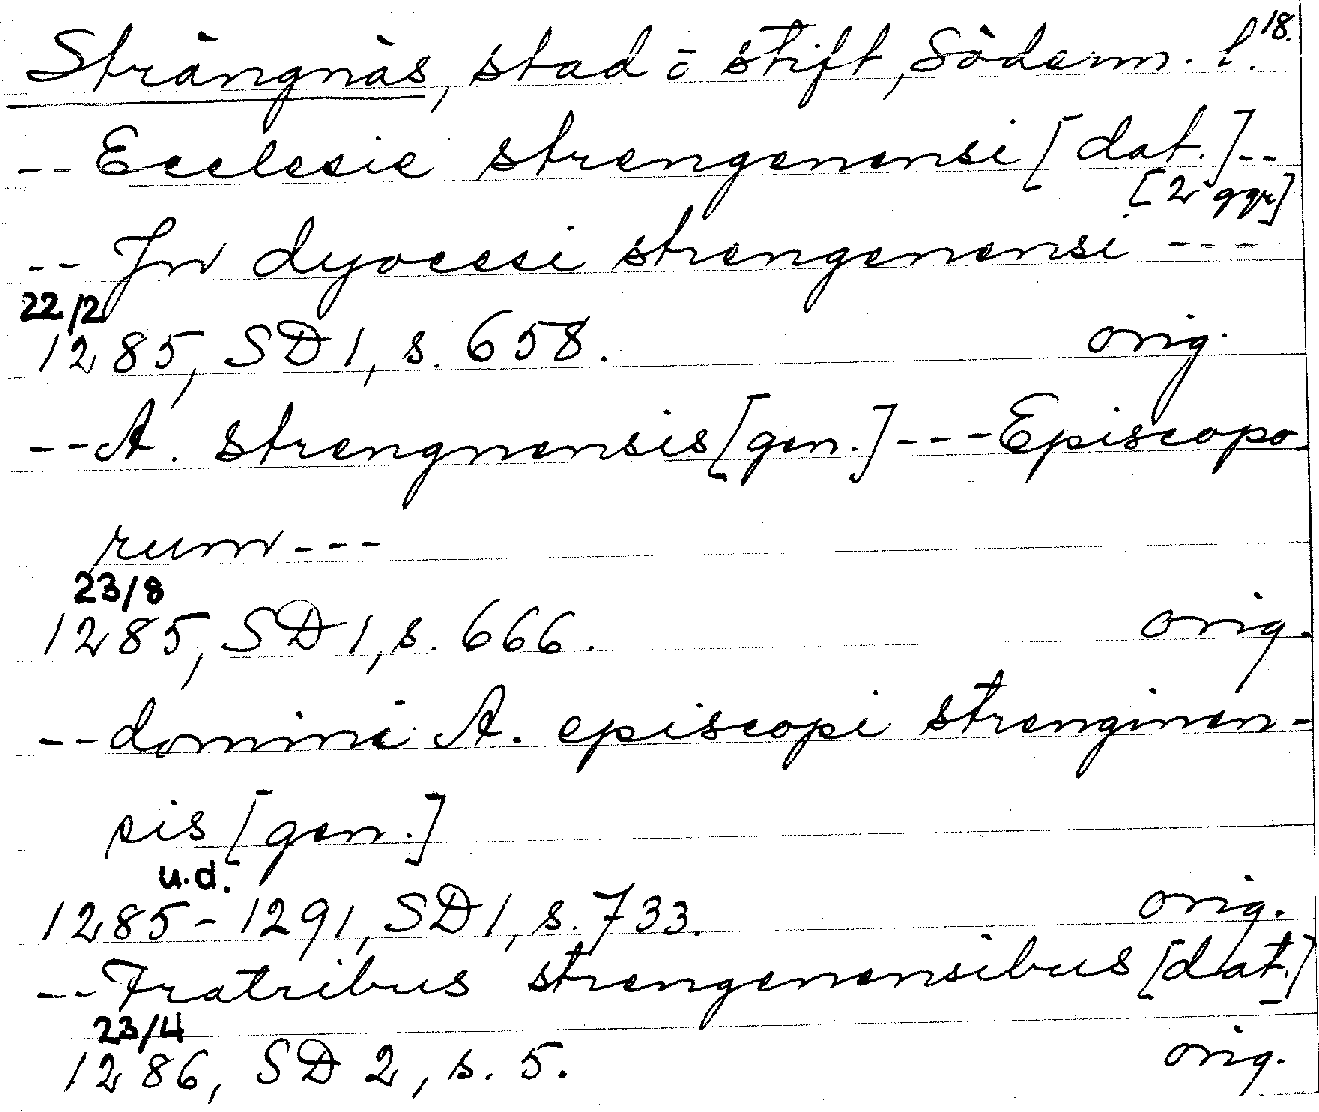 18.
Strängnäs, stad o stift, Söderm. l.
-- Ecclesie strengenensi [dat.] --
[2 ggr]
-- Jn dyocesi strengenensi ---
22/2
1285, SD 1, s. 658. orig.
-- A. strengnensis [gen.] --- Episcopo-
rum ---
23/8
1285, SD 1, s. 666. orig.
-- domini A. episcopi strenginen-
sis [gen.]
u.d.
1285-1291, SD 1, s. 733. orig.
-- Fratribus strengenensibus [dat.]
23/4
1286, SD 2, s. 5. orig.